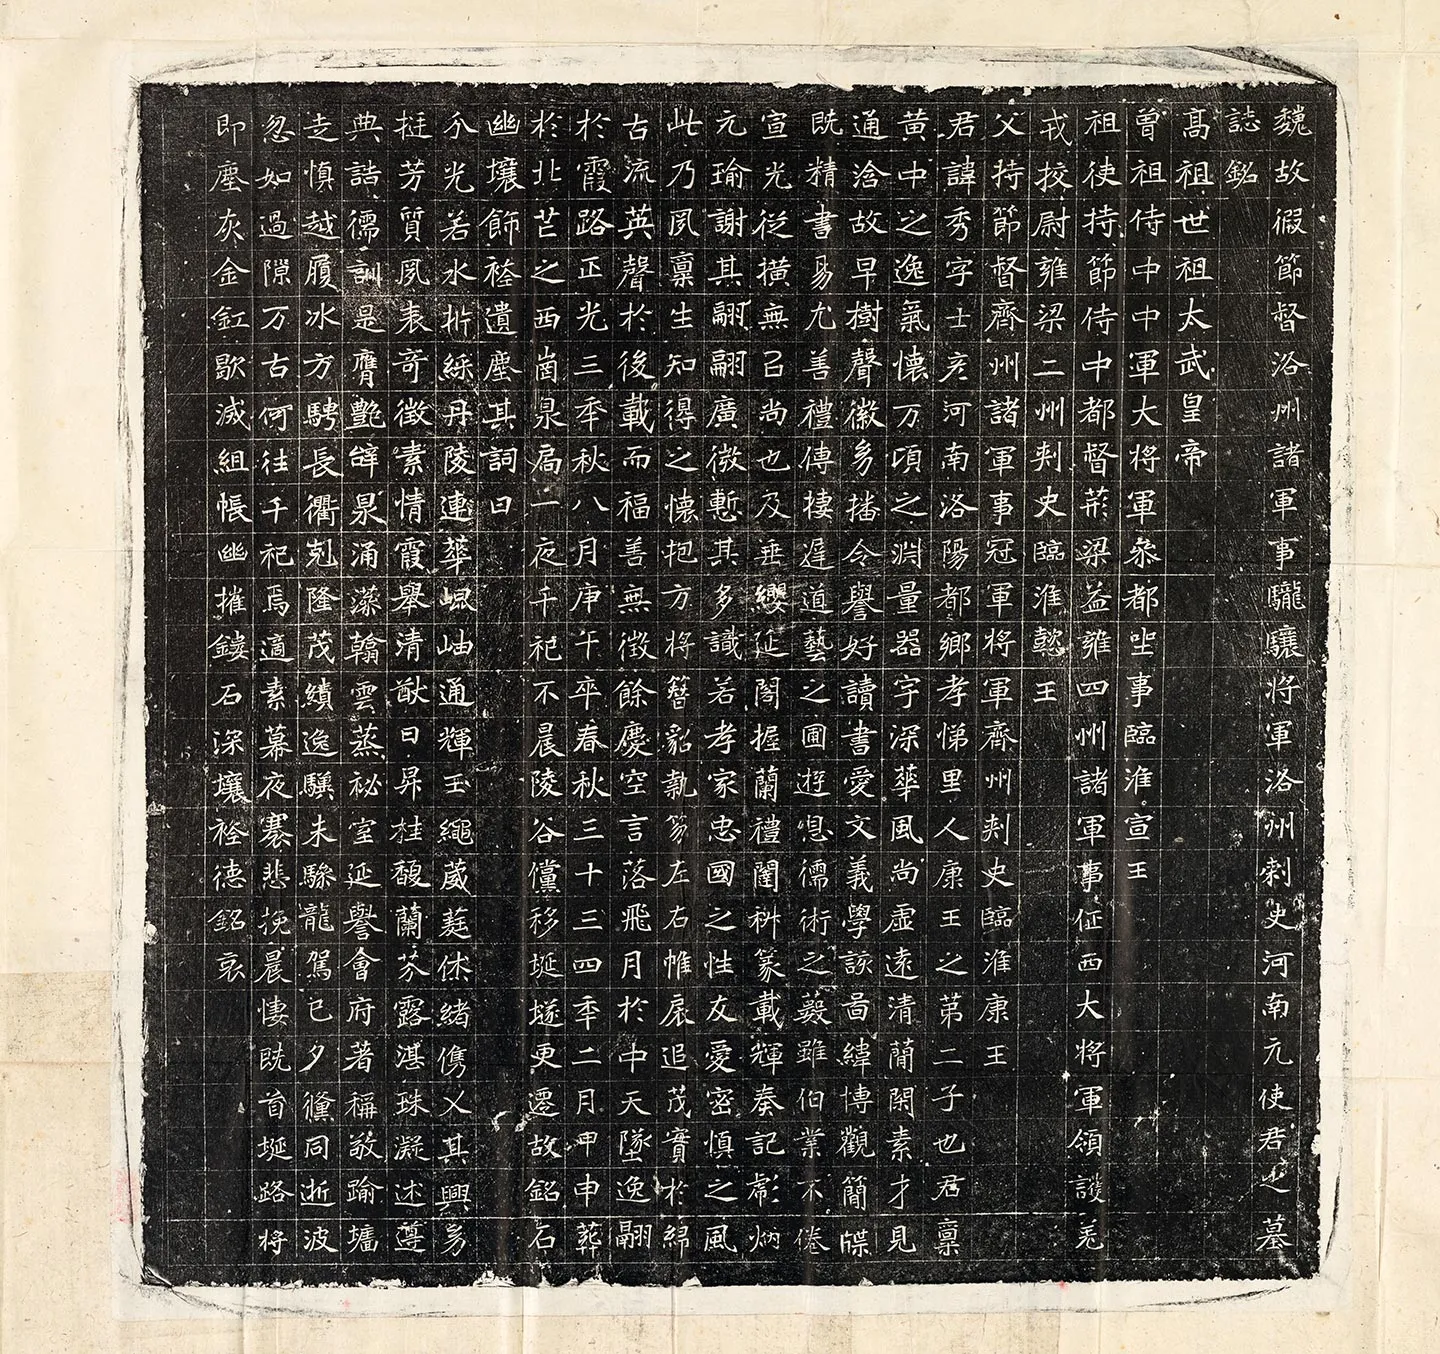 魏故假節督洛州諸軍事驪驤將軍洛州刺史河南元使君之墓
誌銘
高祖世祖太武皇帝
曾祖侍中中軍大將軍叅都坐事臨淮宣王
祖使持節侍中都督荊梁益雍四州諸軍事征西大將軍領護羌
戎挍尉雍梁二州刺史臨淮懿王
父持節督齊州諸軍事冠軍將軍齊州刺史臨淮康王
君諱秀字士彦河南洛陽都鄉孝悌里人康王之第二子也君稟
黃中之逸氣懷万頃之淵量器宇深華風尚虛遠清蕳閑素才見
通洽故早樹聲徽多播令譽好讀書愛文義學該啚緯博觀蕳牒
既精書易尤善禮傳棲遟道藝之圃遊息儒術之薮雖伯業不倦
宣光從橫無已尚也及垂纓延閣握蘭禮闈科篆載輝奏記彪炳
元瑜謝其翩翩廣微慙其多識若孝家忠國之性友愛密慎之風
此乃夙稟生知得之懷抱方將簪貂執笏左右帷扆追茂實於綿
古流英聲於後載而福善無徵餘慶空言落飛月於中天墜逸翮
於霞路正光三秊秋八月庚午卒春秋三十三四秊二月甲申葬
於北芒之西崗泉扃一夜千祀不晨陵谷儻移埏燧更遷故銘石
幽壤飾裬遺塵其詞曰
分光若水㭊綵丹陵連華崐岫通輝玉繩葳蕤休緒儁乂其興多
挺芳質夙表奇徵素情霞舉清猷日昇桂馥蘭芬露湛珠凝述遵
典誥儒訓是膺艷辝泉涌藻翰雲蒸祕室延譽會府著稱敬踰墻
走慎越履冰方騁長衢剋隆茂績逸驥未驂龍駕已夕儻同逝波
忽如過隙万古何往千祀焉適素幕夜褰悲挽晨悽既首埏路將
即塵灰金釭歇滅組帳幽摧鏤石深壤裬德銘哀